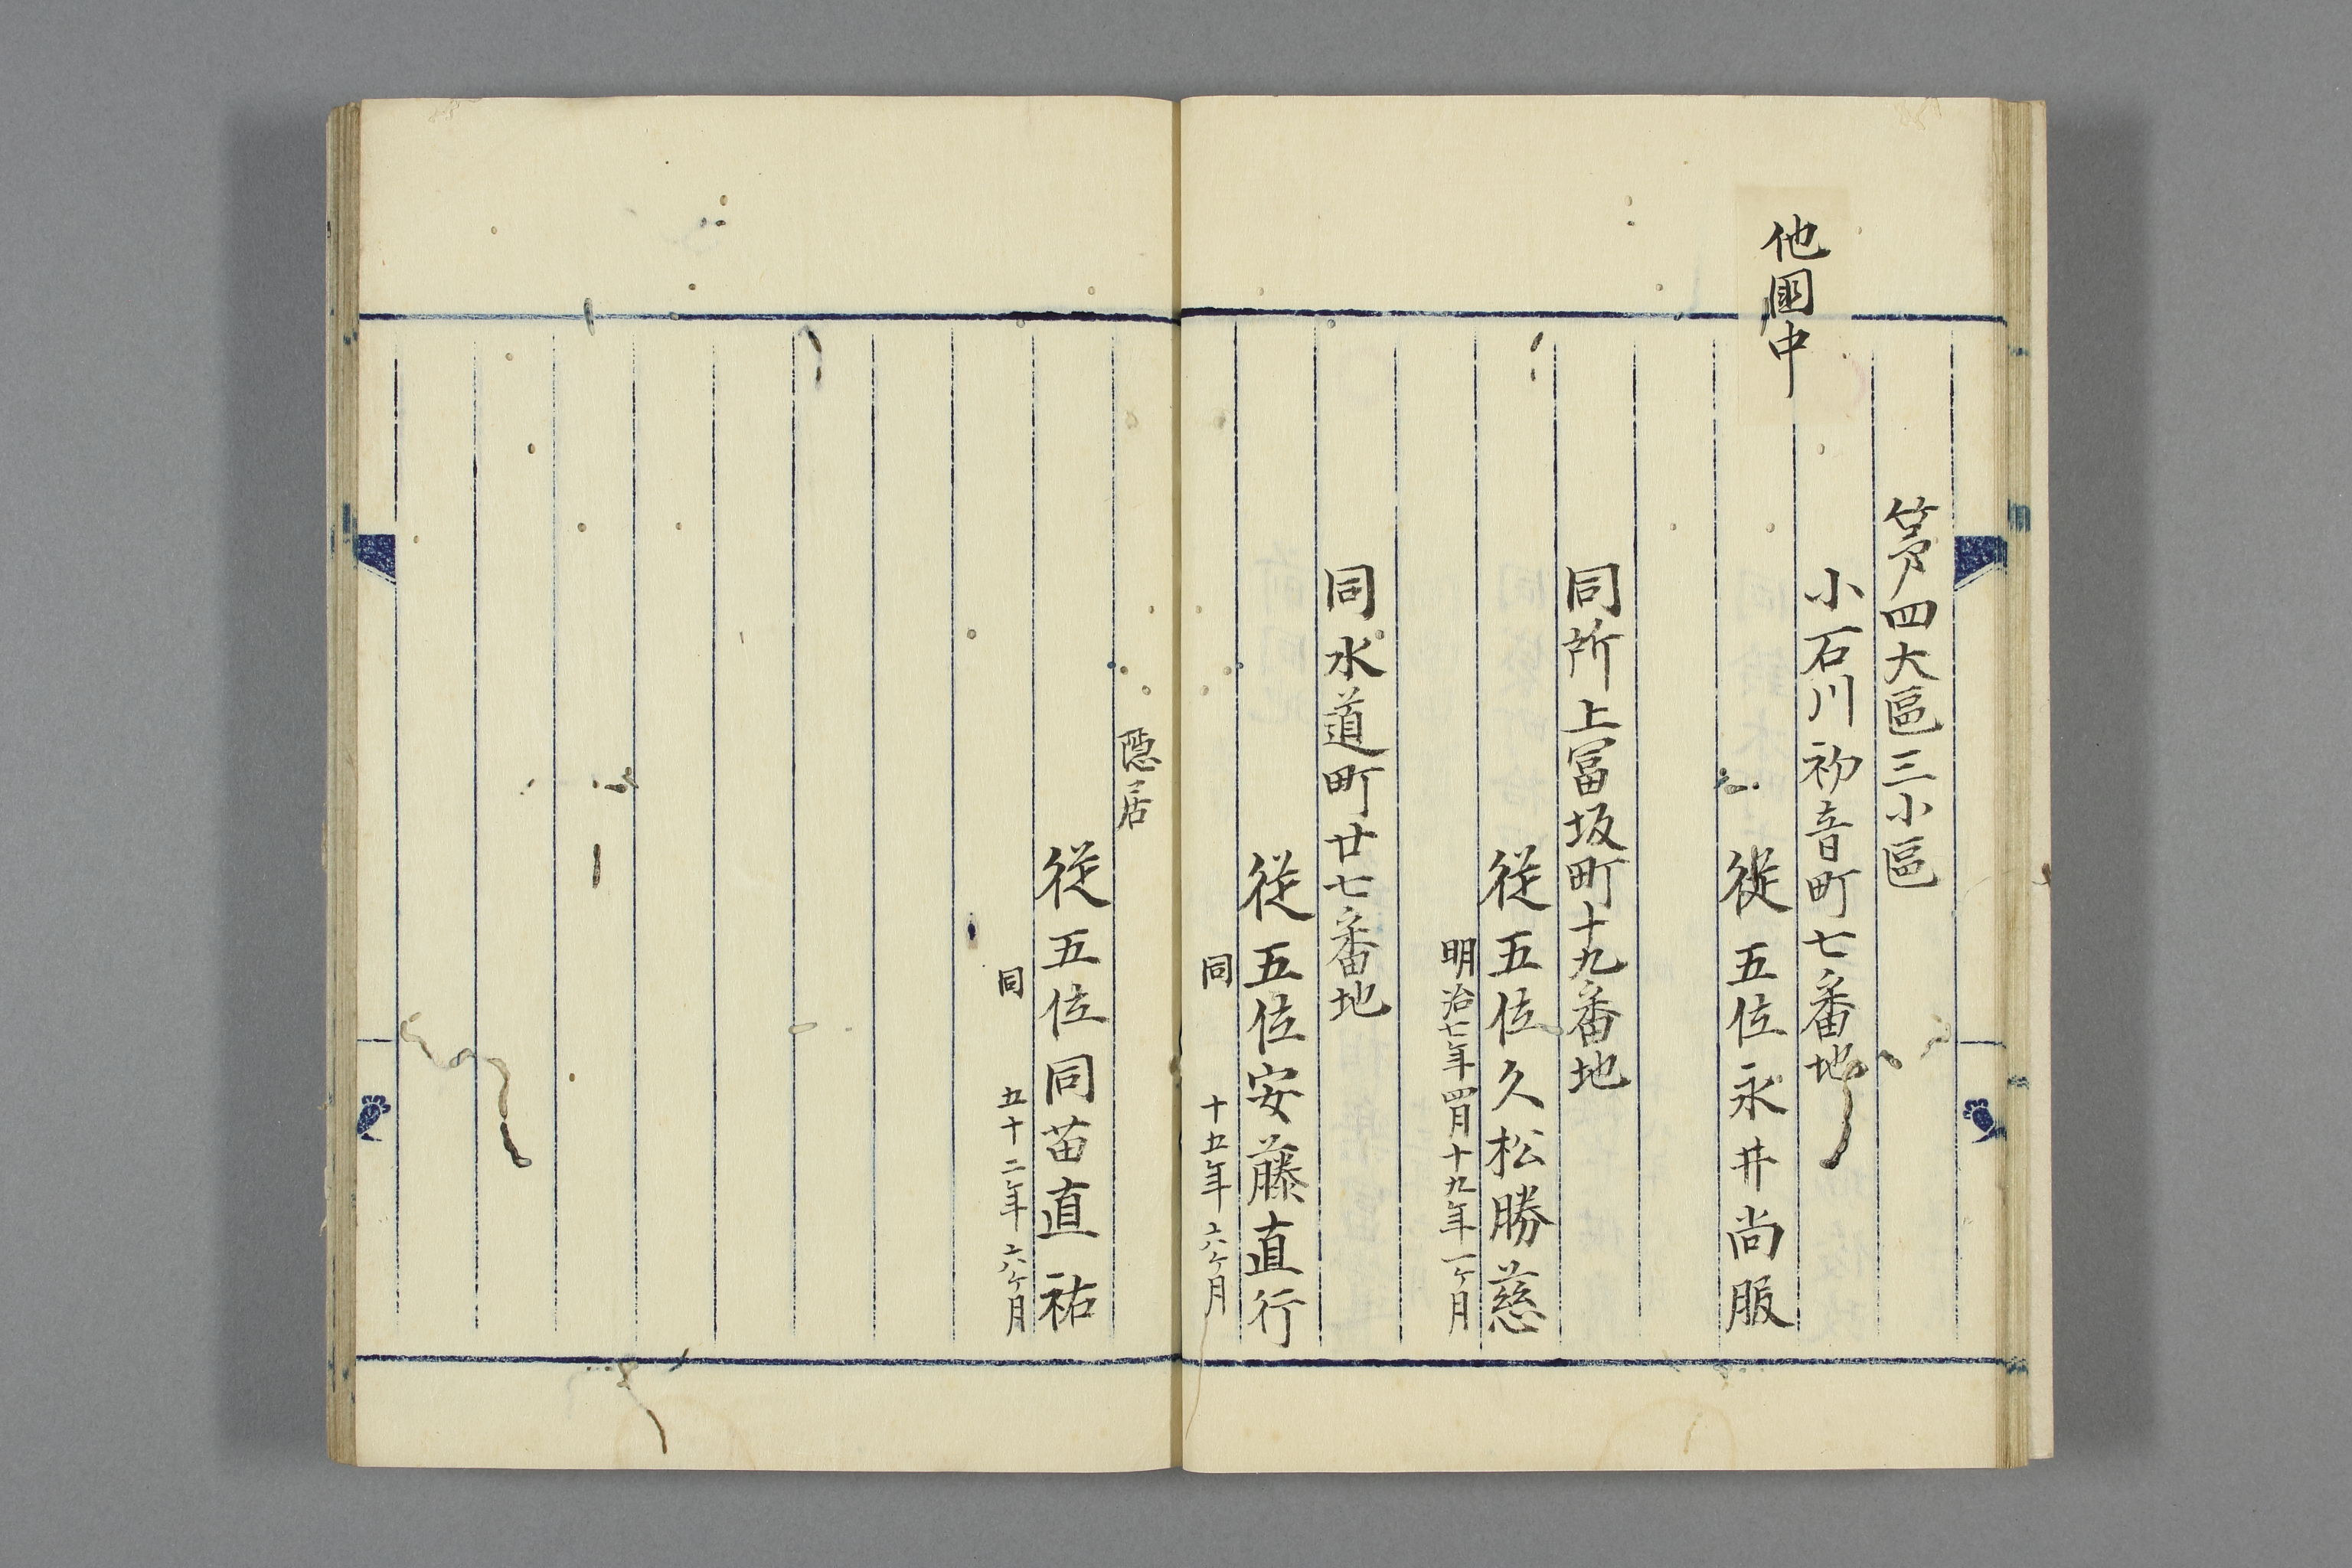 第四大區三小區
小石川初音町七番地
他國中
從五位永井尚服
同所上冨坂町十九番地
從五位久松勝慈
明治七年四月十九年一ケ月
同水道町廿七番地
從五位安藤直行
同 十五年六ケ月
隠居
從五位同苗直祐
同 五十二年六ケ月